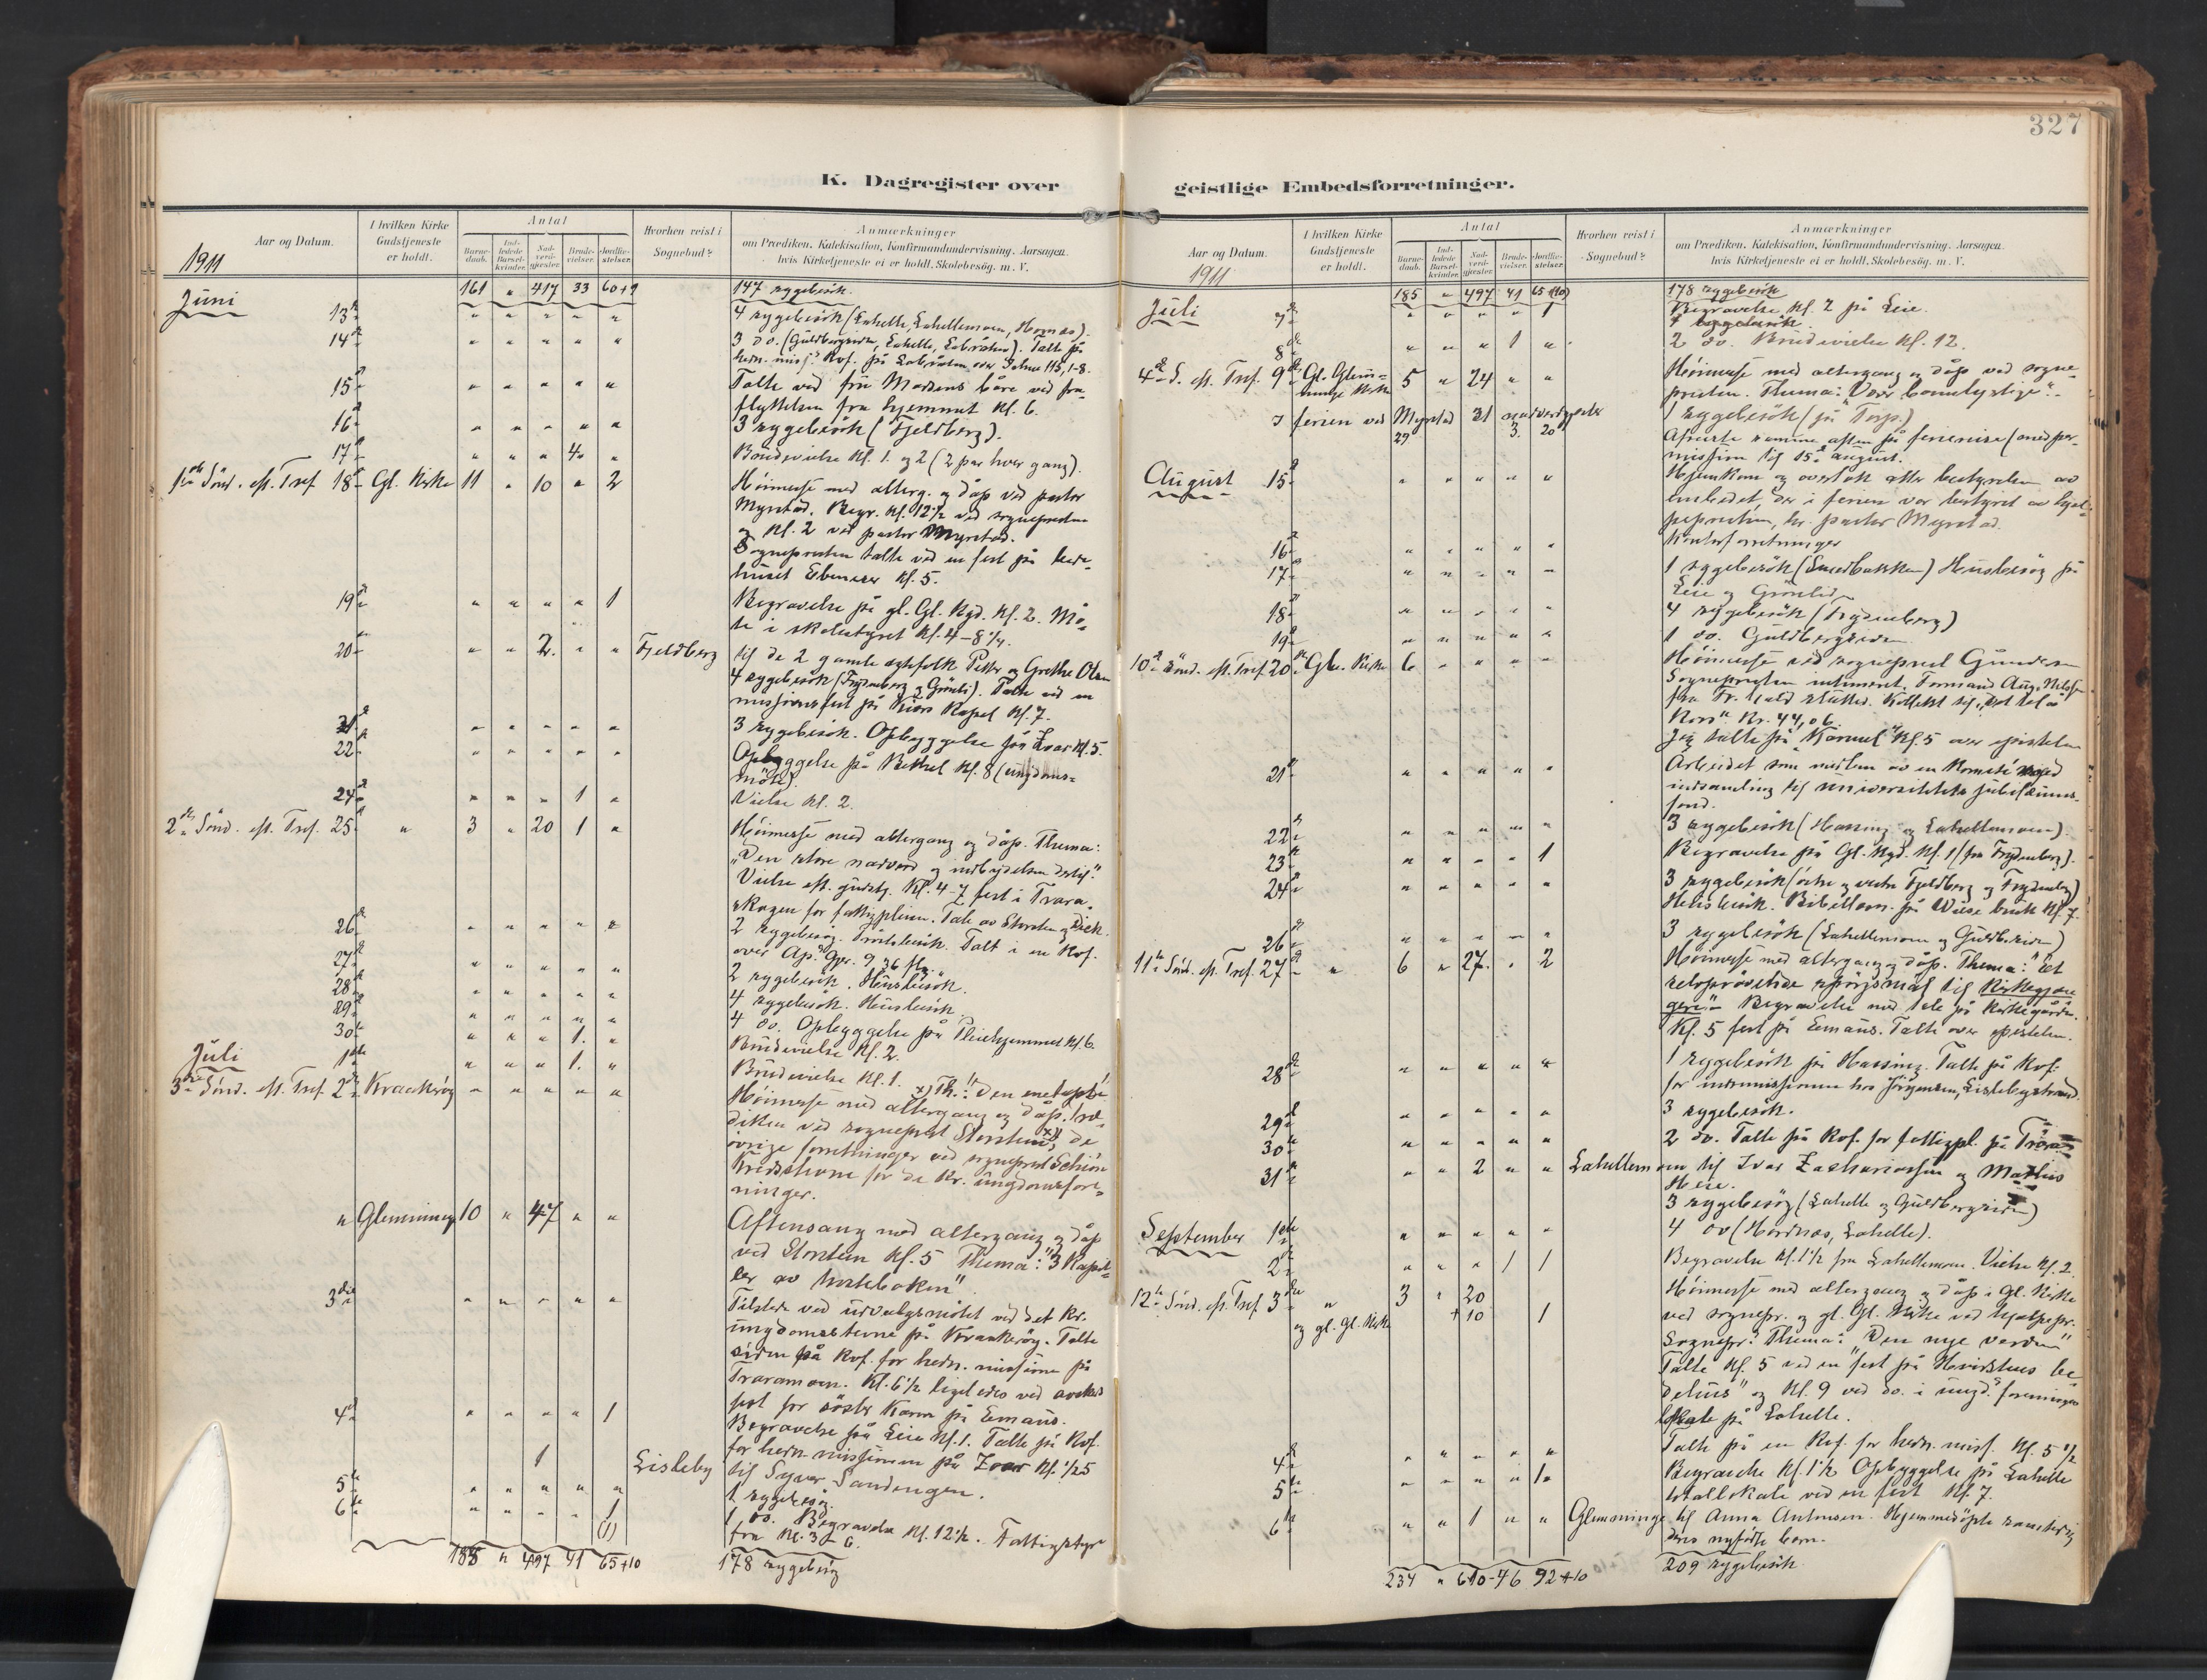 327
K. Dagregister over
geistlige Embedsforretninger.
Aar og Datum.
1911
I hvilken Kirke Gudstjeneste er holdt.
Antal
Barne-daab.
Ind-ledede Barsel-kvinder.
Nad-verd-gjester.
Brude-vielser.
Jordfæ-stelser.
Hvorhen reist i Sognebud?
Anmærkninger
om Prædiken, Katekisation, Konfirmandundervisning. Aarsagen,
hvis Kirketjeneste ei er holdt, Skolebesøg. m. V.
161 " 417 33 60+9 147 sygebesök.
Juni 13de " " " " " 4 sygebesök (Lahelle, Lahellemoen, Hornæs).
14de " " " " " 3 do. (Guldbergsiden, Lahelle, Labråten). Talte på
hedn. miss.s Kof. på Labråten over Salme 115, 1-8.
15de " " " " " Talte ved fru Madsens båre ved fra-
flyttelsen fra hjemmet kl. 6.
16de " " " " " 3 sygebesök (Fjeldberg).
17de " " " 4 " Brudevielse kl. 1 og 2 (2 par hver gang).
1ste Sönd. eft. Tref. 18de Gl. Kirke 11 " 10 " 2 Höimesse med alterg. og dåp ved pastor
Myrstad. Begr. kl. 12½ ved sognepresten
og kl. 2 ved pastor Myrstad.
Sognepresten talte ved en fest på bede-
huset Ebeneser kl. 5.
19de " " " " 1 Begravelse på gl. Gl. Kgd. kl. 2. Mö-
te i skolestyret kl. 4-8¼.
20de " " 2 " " Fjeldberg til de 2 gamle ektefolk Petter og Grethe Olsen
4 sygebesök (Frydenberg og Grönli). Talte ved en
missionsfest på Kiær's Kapel kl. 7.
21de " " " " " 3 sygebesök. Opbyggelse på Zoar kl. 5.
22de " " " " " Opbyggelse på Bethel kl. 8 (ungdoms-
möte).
24de " " " 1 " Vielse kl. 2.
2den Sönd. eft. Tref. 25de " 3 " 20 1 " Höimesse med altergang og dåp. Thema:
"Den store nadverd og indbydelsen dertil."
Vielse eft. gudstj. Kl. 4-7 fest i Trara-
skogen for fattigpleien. Tale av Storsten og Dick.
26de " " " " " 2 sygebesög. Talt i en Kof.
over Ap. Gjer. 9, 36 flg.
27de " " " " " 2 sygebesök. Husbesök.
28de " " " " " 4 sygebesök. Husbesök.
29de " " " " " 4 do. Opbyggelse på Pleiehjemmet kl. 6.
30te " " " 1 " Brudevielse kl. 2.
Juli 1ste " " " 1 " Brudevielse kl. 1.
3die Sönd. eft. Tref. 2den Kraakeröy " " " " " Höimesse med altergang og dåp. Præ-
diken ved sogneprest Storsten x), de
övrige forretninger ved sogneprest Schiön
Kredsstevne for de kr. ungdomsfore-
ninger.
" Glemminge 10 " 47 " " Aftensang med altergang og dåp
ved Storsten kl. 5 Thema: "3 Kapit-
ler av hosteboken".
3die " " " " " Tilstede ved utvalgsmötet ved det kr.
ungdomsstevne på Kraakeröy. Talte
siden på Kof. for hedn. missionen på
Traramoen. Kl. 6½ ligeledes ved avskeds
fest for söster Karen på Emaus.
4de " " " " 1 Begravelse på Leie kl. 1. Talte på Kof.
for hedn. missionen på Zoar kl. ½5
1 Lisleby til Syver Sandengen.
5te " " " " " 1 sygebesög.
6te " " " " 1 (1) 1 do. Begravelse kl. 12½. Fattigstyre
fra kl. 3 - 6.
188 " 497 41 65+10 178 sygebesög
Aar og Datum.
1911
I hvilken Kirke Gudstjeneste er holdt.
Antal
Barne-daab.
Ind-ledede Barsel-kvinder.
Nad-verd-gjester.
Brude-vielser.
Jordfæ-stelser.
Hvorhen reist i Sognebud?
Anmærkninger
om Prædiken, Katekisation, Konfirmandundervisning. Aarsagen,
hvis Kirketjeneste ei er holdt, Skolebesøg. m. V.
185 " 497 41 65 (10) 178 sygebesök
Juli 7de " " " " 1 Begravelse kl. 2 på Leie.
4 sygebesök.
8de " " " 1 " 2 do. Brudevielse kl. 12.
4de S. eft. Tref. 9de Gl. Glem-minge Kirke 5 " 24 " " Höimesse med altergang og dåp ved sogne-
presten. Thema: "Vær barmhjertige".
1 sygebesök (på Torp.)
I ferien ved Myrstad 31 nadverdgjester
29 3 20
Afreiste samme aften på feriereise (med per-
mission til 15de august.
August 15de " " " " " Hjemkom og overtok atter bestyrelsen av
embedet, der i ferien var bestyret av hjæl-
pepresten, hr. pastor Myrstad.
16de " " " " " Kontorforretninger
17de " " " " " 1 sygebesök (Smedbakken) Husbesög på
Leie og Grönlid
18de " " " " " 4 sygebesök (Frydenberg)
19de " " " " " 1 do. Guldbergsiden
10de Sönd. eft. Tref. 20de Gle. Kirke 6 " " " " Höimesse ved sogneprest Gundersen
Sognepresten intimeret. Formand Aug. Nilsen
fra Fr.hald sluttet. Kollekt til "det blå
Kors". Kr. 44,06.
Jeg talte på "Karmel" kl. 5 over epistelen
21de " " " " " Arbeidet som medlem av en komité med
indsamling til universitetets jubilæums-
fond.
22de " " " " " 3 sygebesök (Hassing og Lahellemoen).
23de " " " " 1 Begravelse på Gl. Kgd. kl. 1 (fra Frydenberg).
24de " " " " " 3 sygebesök (östre og vestre Fjeldberg og Frydenberg)
Husbesök. Bibellæsn. på Wiese bruk kl. 7.
26de " " " " " 3 sygebesök (Lahellemoen og Guldb.siden)
11te Sönd. eft. Tref. 27de " 6 " 27 " 2 Höimesse med altergang og dåp. Thema: "Et
selvprövende spörgsmål til Kirkegjæn-
gere". Begravelse med tale på Kirkegården.
Kl. 5 fest på Emaus. Talte over epistelen.
28de " " " " " 1 sygebesök på Hassing. Talte på Kof.
for indremissionen hos Jörgensen, Lislebystrand.
29de " " " " " 3 sygebesök.
30te " " " " " 2 do. Talte på Kof. for fattigpl. på Trara
31te " " 2 " " Lahellemoen til Ivar Zachariassen og Mathis
Heie.
3 sygebesög (Lahelle og Guldbergsiden)
September 1ste " " " " " 4 do (Hornæs, Lahelle).
2den " " " 1 1 Begravelse kl. 1½ fra Lahellemoen. Vielse kl. 2.
12te Sönd. eft. Tref. 3die " og gl. Gl. Kirke 3 " 20 +10 1 Höimesse med altergang og dåp i Gl. Kirke
ved sognepr. og gl. Gl. Kirke ved hjælpepr.
Sognepr.s Thema: "Den nye verden"
Talte kl. 5 ved en fest på Hvidsteens be-
dehus" og kl. 9 ved do. i ungd.s foreningens
lokale på Lahelle.
4de " " " " " Talte på en Kof. for hedn. miss. kl. 5½
5te " " " " 1 Begravelse kl. 1½ Opbyggelse på Lahelle
totallokale ved en fest kl. 7.
6te " " 1 " " Glemminge til Anna Antonsen. Hjemmedöpte samtidig
deres nyfödte barn.
234 " 610 46 92+10 209 sygebesök